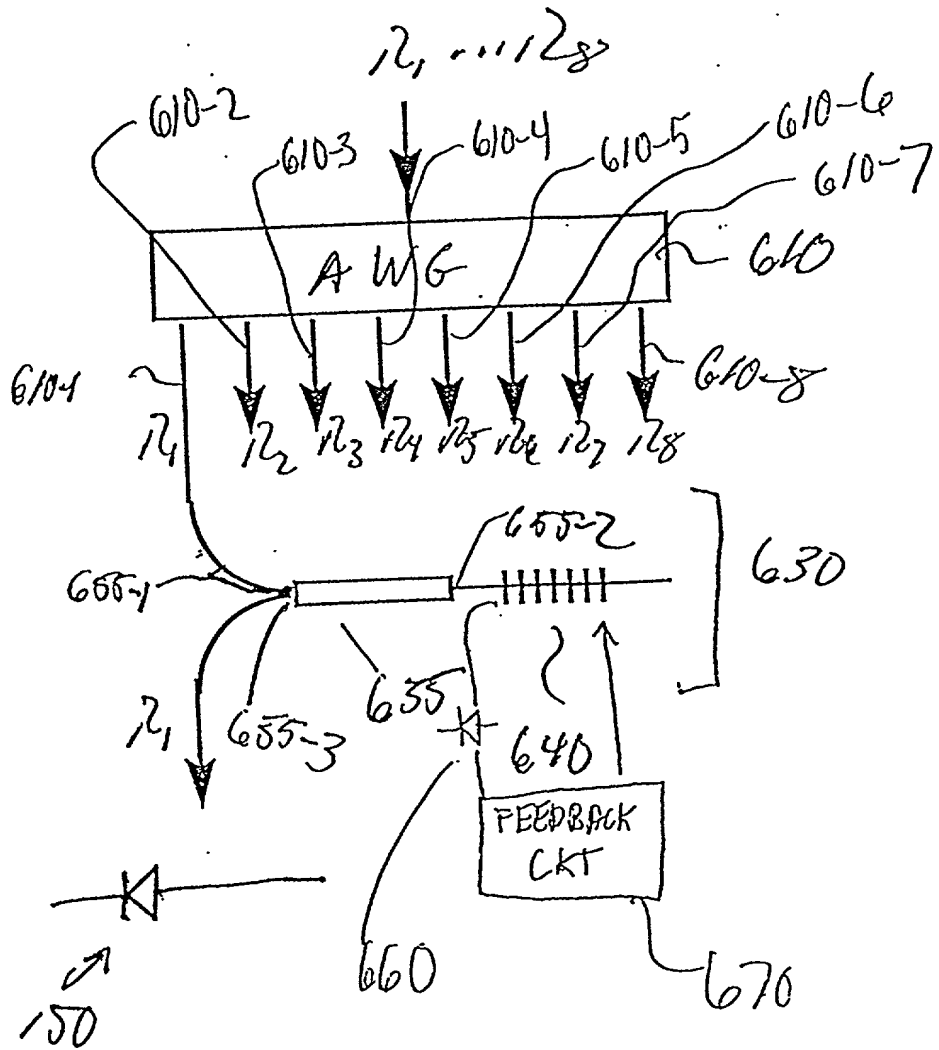 λ1 ... λ8
610-2
610-3
610-4
610-5
610-6
610-7
AWG
610
610-1
610-8
λ1
λ2 λ3 λ4 λ5 λ6 λ7 λ8
655-2
630
655-1
655
λ1
655-3
640
FEEDBACK
CKT
660
670
150